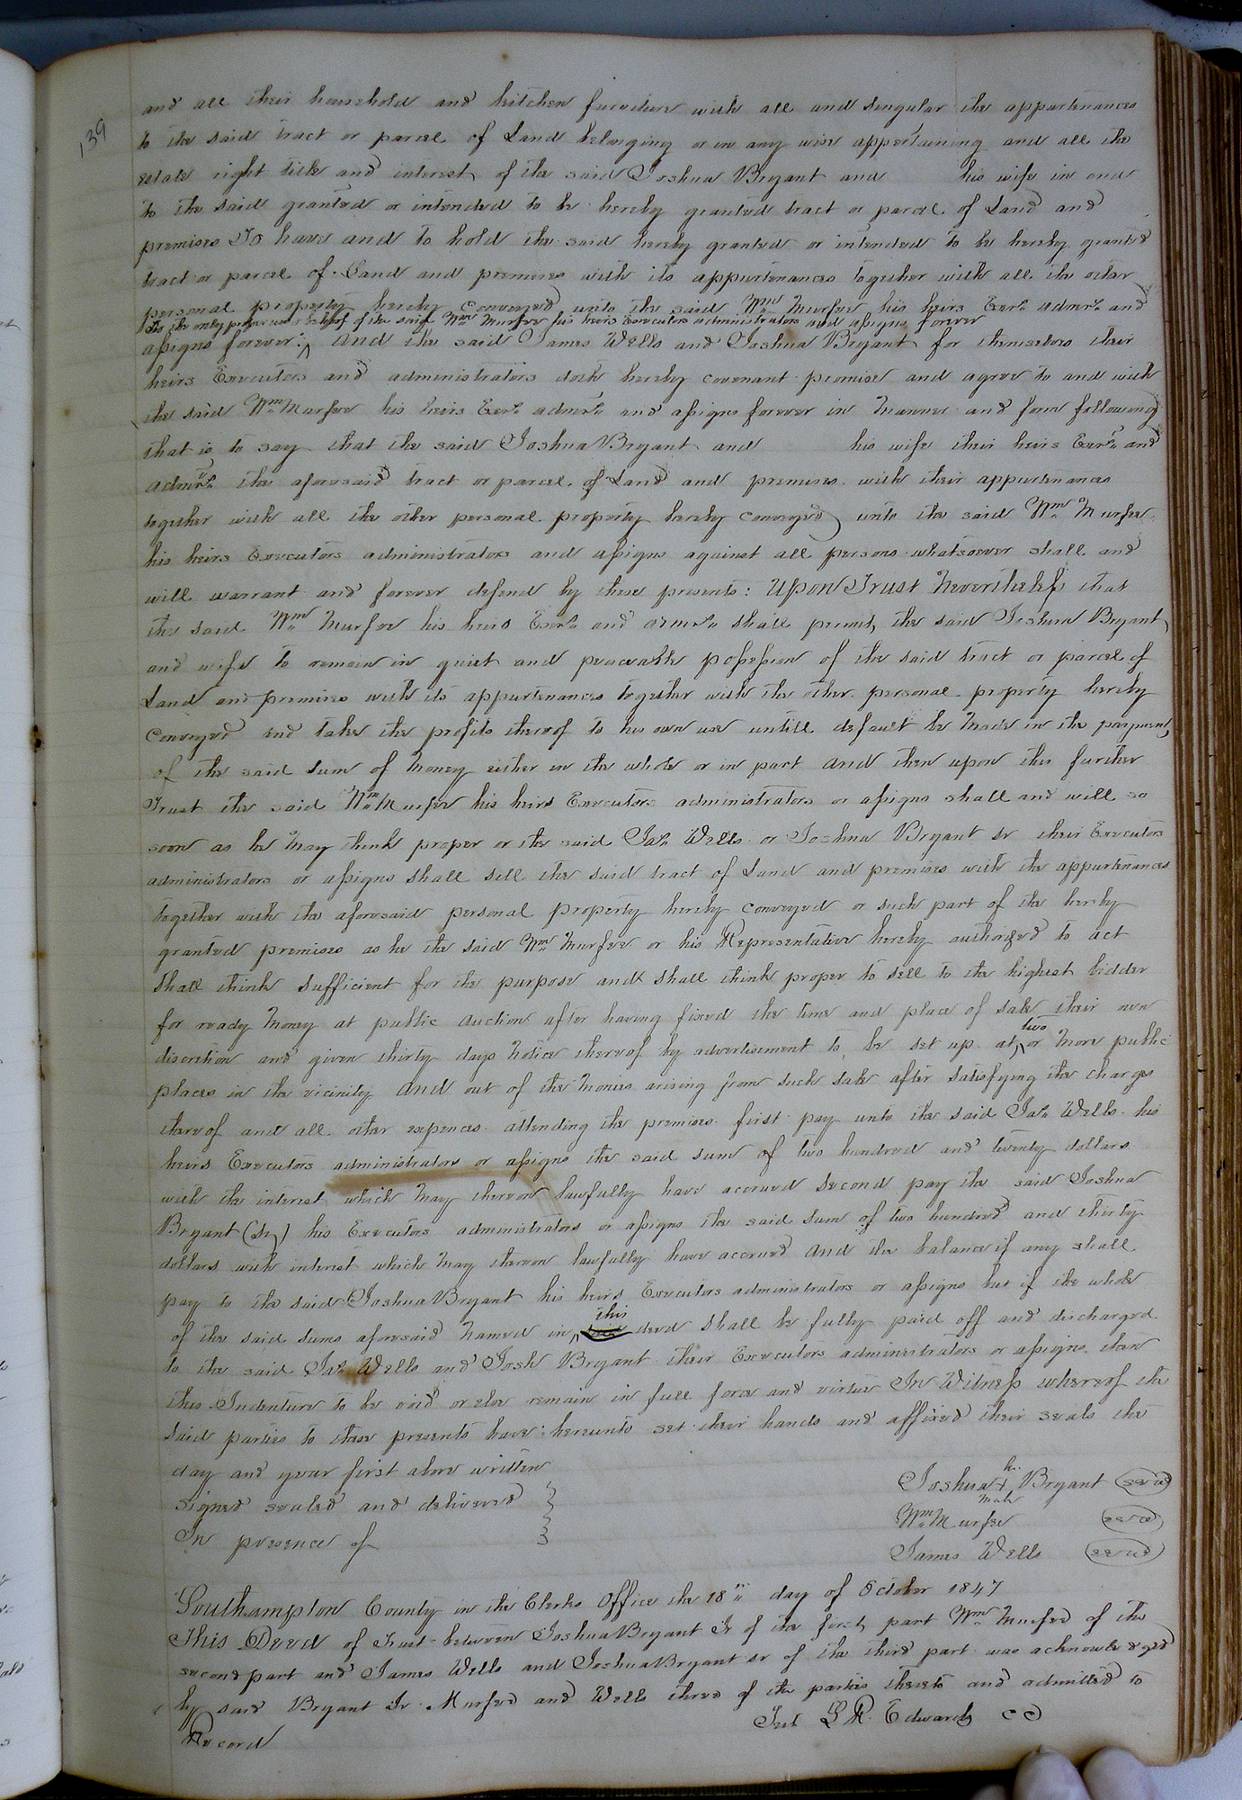 139
and all their household and kitchen furniture with all and singular the appartenances
to the said tract or parcel of Land belonging or in any wise appertaining and all the
estate right title and interest of the said Joshua Bryant and his wife in and
to the said granted or intended to be hereby granted tract or parcel of Land and
premises To have and to hold the said hereby granted or intended to be hereby granted
tract or parcel of Land and premises with its appurtenances together with all the other
personal property hereby conveyed unto the said Wm Murfee his heirs Exrs admrs and
To the only proper use & behoof of the said Wm Murfee his heirs Executors administrators and assigns forever
assigns forever: ^ And the said James Wells and Joshua Bryant for themselves their
heirs Executors and administrators doth hereby covenant promise and agree to and with
the said Wm Murfee his heirs Exrs admrs and assigns forever in Manner and form following
that is to say that the said Joshua Bryant and his wife their heirs Exrs and
admrs the aforesaid tract or parcel of Land and premises with their appurtenances
together with all the other personal property hereby conveyed unto the said Wm Murfee
his heirs Executors administrators and assigns against all persons whatsoever shall and
will warrant and forever defend by these presents: Upon Trust Nevertheless that
the said Wm Murfee his heirs Exrs and admrs shall permit the said Joshua Bryant
and wife to remain in quiet and peaceable possession of the said tract or parcel of
Land and premises with its appurtenances together with the other personal property hereby
conveyed and take the profits thereof to his own use untill default be Made in the payment
of the said sum of Money either in the whole or in part And then upon this further
Trust the said Wm Murfee his heirs Executors administrators or assigns shall and will so
soon as he May think proper or the said Jas Wells or Joshua Bryant sr their Executors
administrators or assigns shall sell the said tract of Land and premises with the appurtenances
together with the aforesaid personal property hereby conveyed or such part of the hereby
granted premises as he the said Wm Murfee or his Representative hereby authorized to act
shall think sufficient for the purpose and shall think proper to sell to the highest bidder
for ready Money at public auction after having fixed the time and place of sale their own
discretion and given thirty days Notice thereof by advertisement to be set up at ^ two or More public
places in the vicinity And out of the Monies arising from such sale after satisfying the charges
thereof and all other expences attending the premises first pay unto the said Jas Wells his
heirs Executors administrators or assigns the said sum of two hundred and twenty dollars
with the interest which May thereon lawfully have accrued Second pay the said Joshua
Bryant (Sr) his Executors administrators or assigns the said sum of two hundred and thirty
dollars with interest which May thereon lawfully have accrued And the balance if any shall
pay to the said Joshua Bryant his heirs Executors administrators or assigns but if the whole
of the said sums aforesaid Named in ^ this deed shall be fully paid off and discharged
to the said Jas Wells and Josh Bryant their Executors administrators or assigns then
this Indenture to be void or else remain in full force and virtue In Witness whereof the
said parties to these presents have hereunto set their hands and affixed their seals the
day and year first above written
signed sealed and delivered
In presence of
Joshua his + mark Bryant (seal)
Wm Murfee (seal)
James Wells (seal)
Southampton County in the Clerks Office the 18" day of October 1847
This Deed of Trust between Joshua Bryant Jr of the first part Wm Murfee of the
second part and James Wells and Joshua Bryant sr of the third part was acknowledged
by said Bryant Jr. Murfee and Wells three of the parties thereto and admitted to
Record
Test L R. Edwards CC